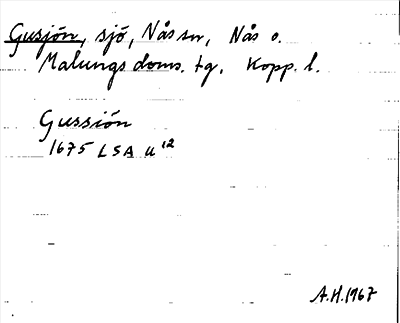 Gusjön, sjö, Nås sn, Nås o.
Malungs doms. tg. Kopp. l.
Gussiön
1675 LSA U 12
A.H. 1967